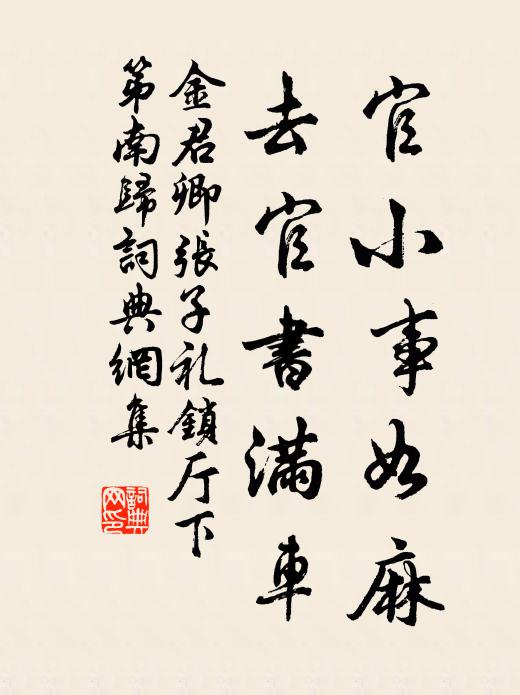 官小事如麻
去官書滿車
金君卿張子礼鎖厅下
第南歸詞典網集
詞典
网印